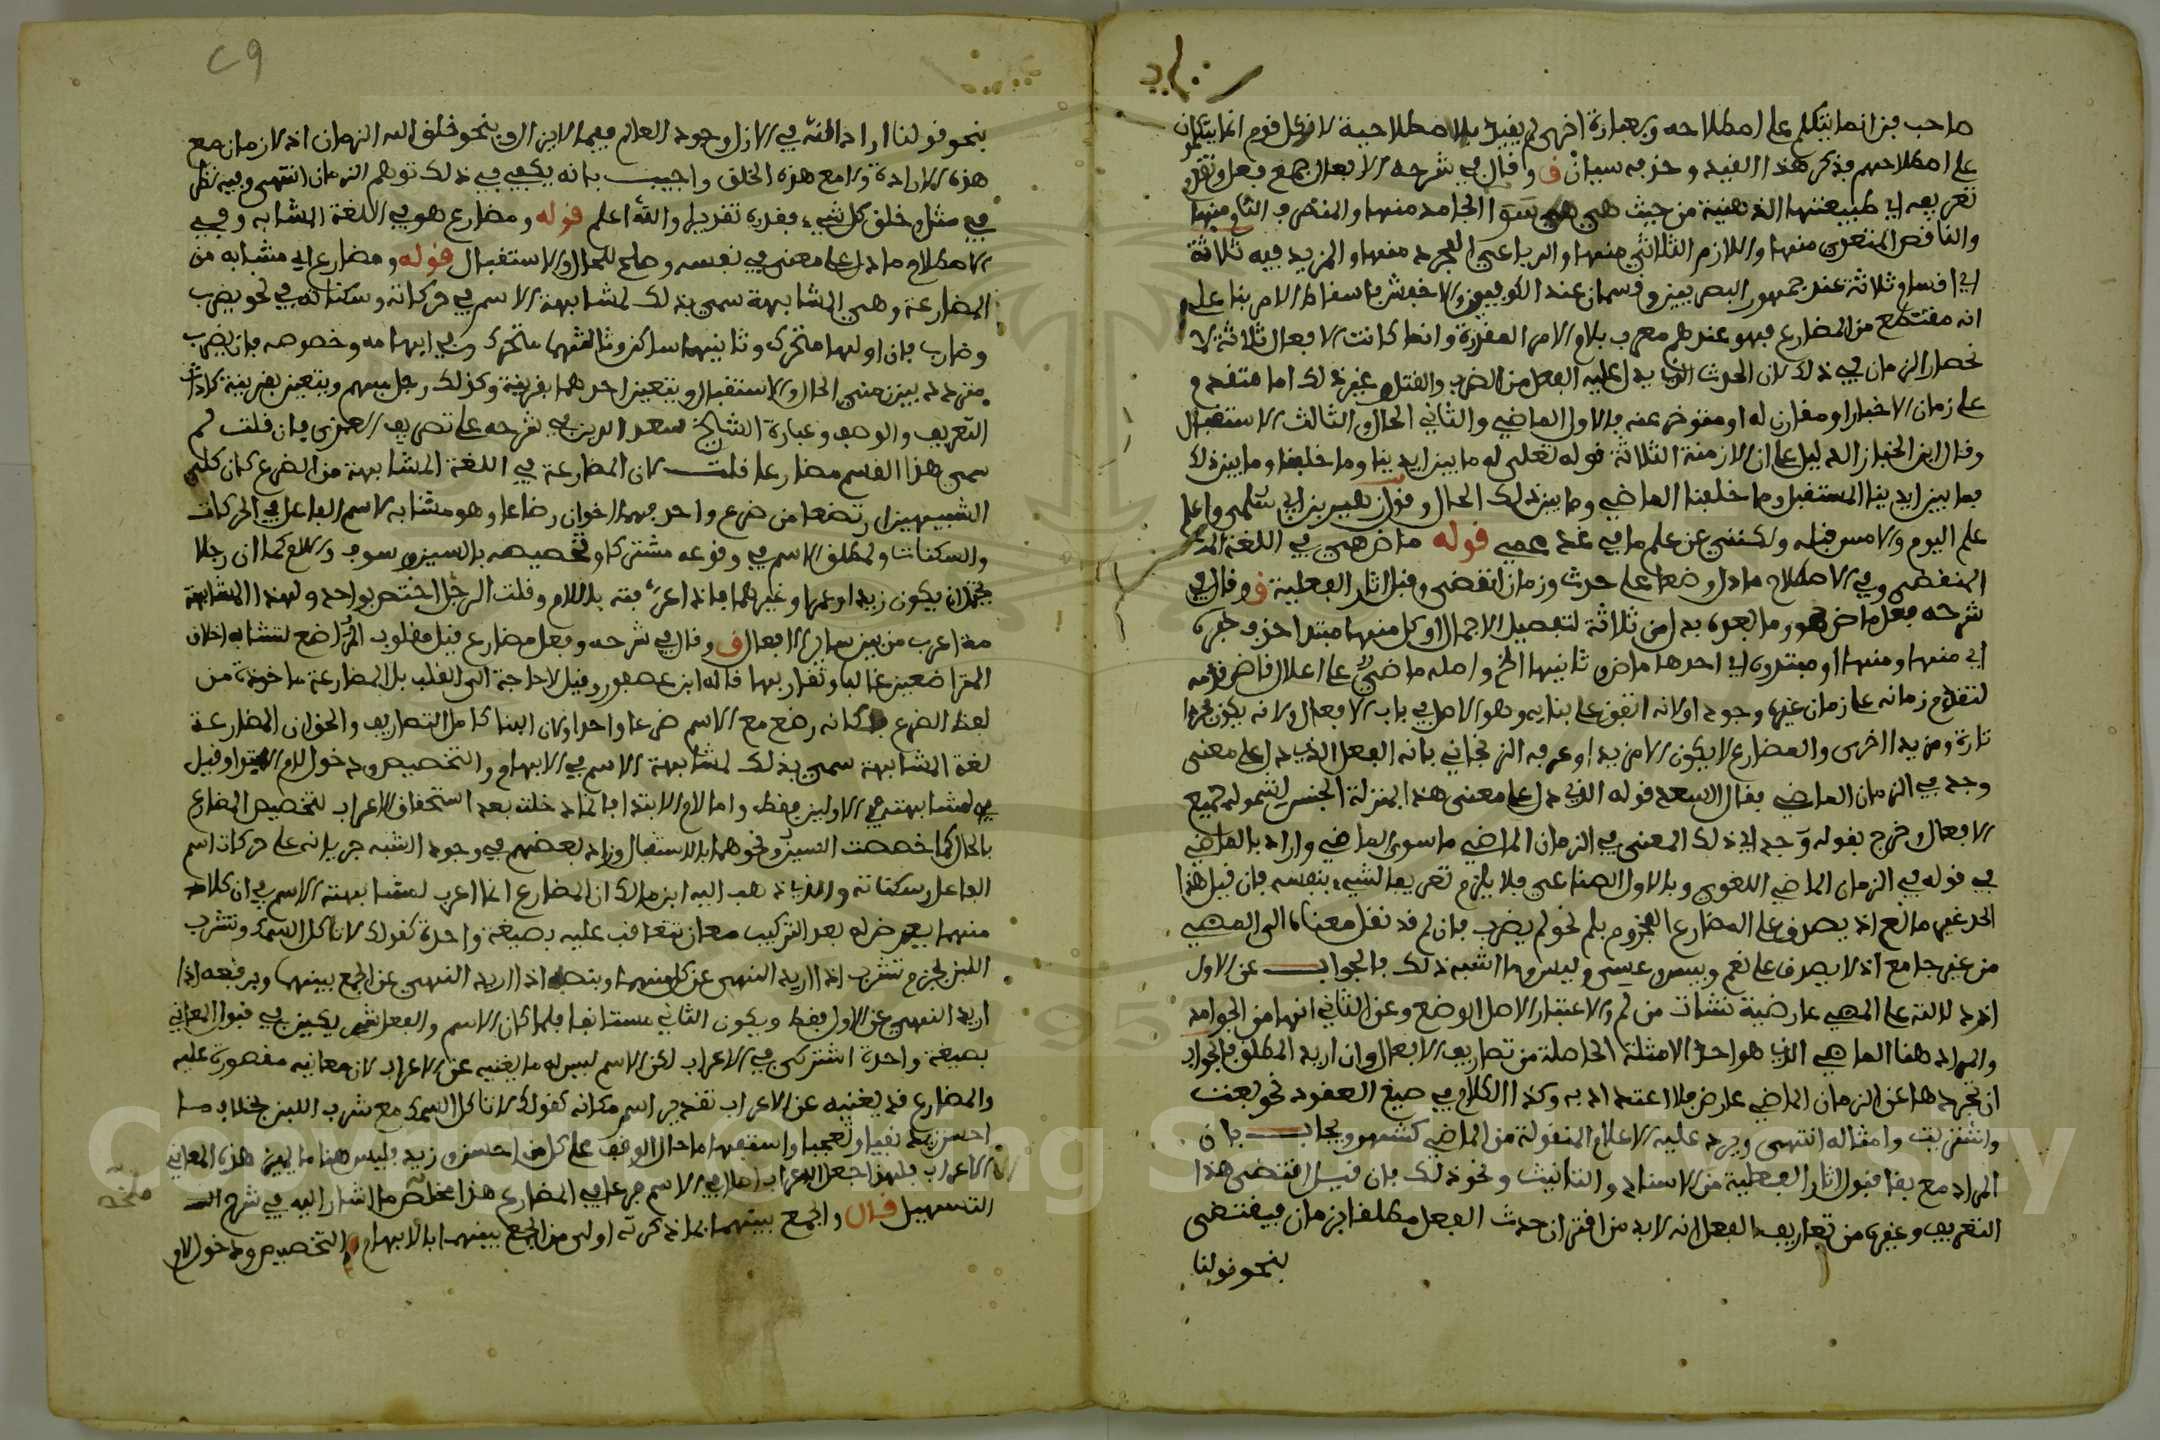 صاحب فن انما يتكلم على اصطلاحه وبعبارة اخرى لم يفيد بالاصطلاحية لان كل قوم انما يتكلمون
على اصطلاحهم فذكر هذا القيد وحذفه سيان ف وقال في شرحه الافعال جمع فعل ونقل
تعريفه اي طبيعتها الذهنية من حيث هي هي سوا الجامد منها والمتصرف التام منها
والناقص المتعدي منها واللازم الثلاثي منها والرباعي المجرد منها والمزيد فيه ثلاثة
اي اقسام ثلاثة عند جمهور البصريين وقسمان عند الكوفيين والاخفش باسقاط الامر بنا على
انه مقتطع من المضارع فهو عندهم معرب بلام الامر المقدرة وانما كانت الافعال ثلاثة لا
نحصار الزمان في ذلك لان الحدث الذي يدل عليه الفعل من الضرب والقتل وغير ذلك اما متقدم
على زمان الاخبار او مقارن له او متوخر عنه فالاول الماضي والثاني الحال والثالث الاستقبال
وقال ابن الخباز الدليل على ان الازمنة الثلاثة قوله تعلى له ما بين ايدينا وما خلفنا وما بين ذلك
فما بين ايدينا المستقبل وما خلفنا الماضي وما بين ذلك الحال وقول زهير بن ابي سلمى واعلم
علم اليوم والامس قبله ولكنني عن علم ما في غد عمي قوله ماض هي في اللغة
المنقضي وفي الاصطلاح ما دل وضعا على حدث وزمان انقضى وقبل اثار الفعلية ف وقال في
شرحه فعل ماض هو وما بعده بدل من ثلاثة لتفصيل الاجمال او كل منها مبتدا حذف خبره
اي منها ومنها او مبتدوه اي احدها ماض وثانيها الخ واصله ماضي على اعلال قاض قدمه
لتقدم زمانه على زمان غيره وجودا ولانه اتفق على بنايه وهو الاصل في باب الافعال ولانه يكون مجردا
تارة ومزيدا اخرى والمضارع لا يكون الا مزيدا وعرفه الزنجاني بانه الفعل الذي دل على معنى
وجد في الزمان الماضي فقال السعد قوله الذي دل على معنى هذا بمنزلة الجنس لشموله جميع
الافعال وخرج بقوله وجد اي ذلك المعنى في الزمان الماضي ما سوى الماضي واراد بالماضي
في قوله في الزمان الماضي اللغوي وبالاول الصناعي فلا يلزم تعريف الشيء بنفسه فان قيل هذا
الحد غير مانع اذ يصدق على المضارع المجزوم بلم نحو لم يضرب فان لم قد نقل معناه الى المضي
من غير جامع اذ لا يصدق على نعم وبيس وعسى وليس وما اشبه ذلك فالجواب عن الاول
ان دلالته على المضي عارضية نشات من لم والاعتبار لاصل الوضع وعن الثاني انها من الجوامد
والمراد هنا الماضي الذي هو احد الامثلة الحاصلة من تصاريف الافعال وان اريد المطلق فالجواب
ان تجردها عن الزمان الماضي عارض فلا اعتداد به وكذا الكلام في صيغ العقود نحو بعت
واشتريت وامثاله انتهى ويرد عليه الاعلام المنقولة من الماضي كشمر ويجاب بان
المراد مع بقا قبول اثار الفعلية من الاسناد والتانيث ونحو ذلك فان قيل اقتضى هذا
التعريف وغيره من تعاريف الفعل انه لا بد من اقتران حدث الفعل مطلقا بزمان فينتقض
بنحو قولنا
٢٩
بنحو قولنا اراد الله في الازل وجود العالم فيما لا يزال وبنحو خلق الله الزمان اذ لا زمان مع
هذه الارادة ولا مع هذه الخلق واجيب بانه يكفي في ذلك توهم الزمان انتهى وفيه نظر
في مثل وخلق كل شيء فقدره تقديرا والله اعلم قوله ومضارع هو في اللغة المشابه وفي
الاصطلاح ما دل على معنى في نفسه وصلح للحال والاستقبال قوله ومضارع اي مشابه من
المضارعة وهي المشابهة سمي بذلك لمشابهة الاسم في حركاته وسكناته في نحو يضرب
وضارب فان اولها متحرك وثانيهما ساكن وثالثهما متحرك وفي ابهامه وخصوصه فان يضرب
متردد بين زمني الحال والاستقبال ويتعين احدهما بقرينة وكذلك رجل مبهم ويتعين بقرينة كاداة
التعريف والوصف وعبارة الشيخ سعد الدين في شرحه على تصريف العزي فان قلت لم
سمي هذا القسم مضارعا قلت لان المضارعة في اللغة المشابهة من الضرع كان كلي
الشبيهين ارتضعا من ضرع واحد فهما اخوان رضاعا وهو مشابه لاسم الفاعل في الحركات
والسكنات ولمطلق الاسم في وقوعه مشتركا وتخصيصه بالسين وسوف واللام كما ان رجلا
يحتمل ان يكون زيدا وعمرا وغيرهما فاذا عرفته باللام وقلت الرجل اختص بواحد ولهذا المشابهة
مة اعرب من بين ساير الافعال ف وقال في شرحه وفعل مضارع قيل مقلوب المراضع لتشابه اخلاق
المتراضعين غالبا وتقاربها قاله ابن عصفور وقيل لا حاجة الى القلب بل المضارعة ماخوذة من
لفظ الضرع كانه رضع مع الاسم ضرعا واحدا ولان البنا كامل التصاريف والحق ان المضارعة
لغة المشابهة سمي بذلك لمشابهة الاسم في الابهام والتخصيص ودخول لام الابتدا وقيل
في مشابهته في الاولين فقط واما لام الابتدا فانما دخلت بعد استحقاق الاعراب لتخصيص المضارع
بالحال كما خصصت السين ونحوها بالاستقبال وزاد بعضهم في وجود الشبه جريانه على حركات اسم
الفاعل وسكناته والذي ذهب اليه ابن مالك ان المضارع انما اعرب لمشابهته الاسم في ان كلا
منهما يعرض له بعد التركيب معان تتعاقب عليه بصيغة واحدة كقولك لا تاكل السمك وتشرب
اللبن بجزم تشرب اذا اريد النهي عن كل منهما وبنصبه اذا اريد النهي عن الجمع بينهما وبرفعه اذا
اريد النهي عن الاول فقط ويكون الثاني مستانفا فلما كان الاسم والفعل شريكين في قبول المعاني
بصيغة واحدة اشتركا في الاعراب لكن الاسم ليس له ما يغنيه عن الاعراب لان معانيه مقصورة عليه
والمضارع قد يغنيه عن الاعراب تقدير اسم مكانه كقولك لا تاكل السمك مع شرب اللبن بخلاف ما
احسن زيد نفيا وتعجبا واستفهاما حال الوقف على كل من احسن وزيد فليس هنا ما يميز هذه المعاني
الا الاعراب فلهذا جعل الاعراب اصلا في الاسم فرعا في المضارع هذا ملخص ما اشار اليه في شرح
التسهيل قال والجمع بينهما بما ذكرته اولى من الجمع بينهما بالابهام والتخصيص ودخول لام